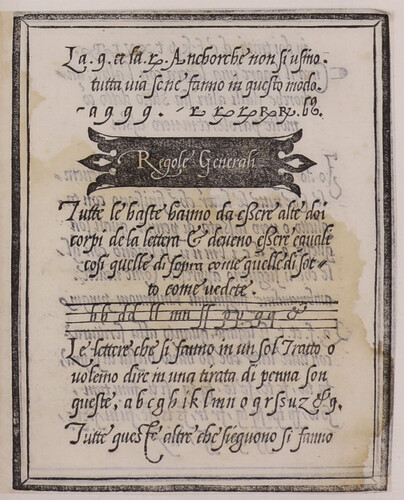 La. g. et la. r. Anchorche non si usino.
tutta via se ne fanno in questo modo.
- a g g g. r r r R R. b9.
Regole Generali
Tutte le haste hanno da essere alte doi
corpi de la lettera & deveno essere equale
cosi quelle di sopra come quelle di sot-
to come vedete.
hb dd ll mn ſſ pp gq &
Le lettere che si fanno in un sol Tratto o
volemo dire in una tirata di penna son
queste, a b c g h i k l m n o q r s s u z & 9.
Tutte queste altre che sieguono si fanno